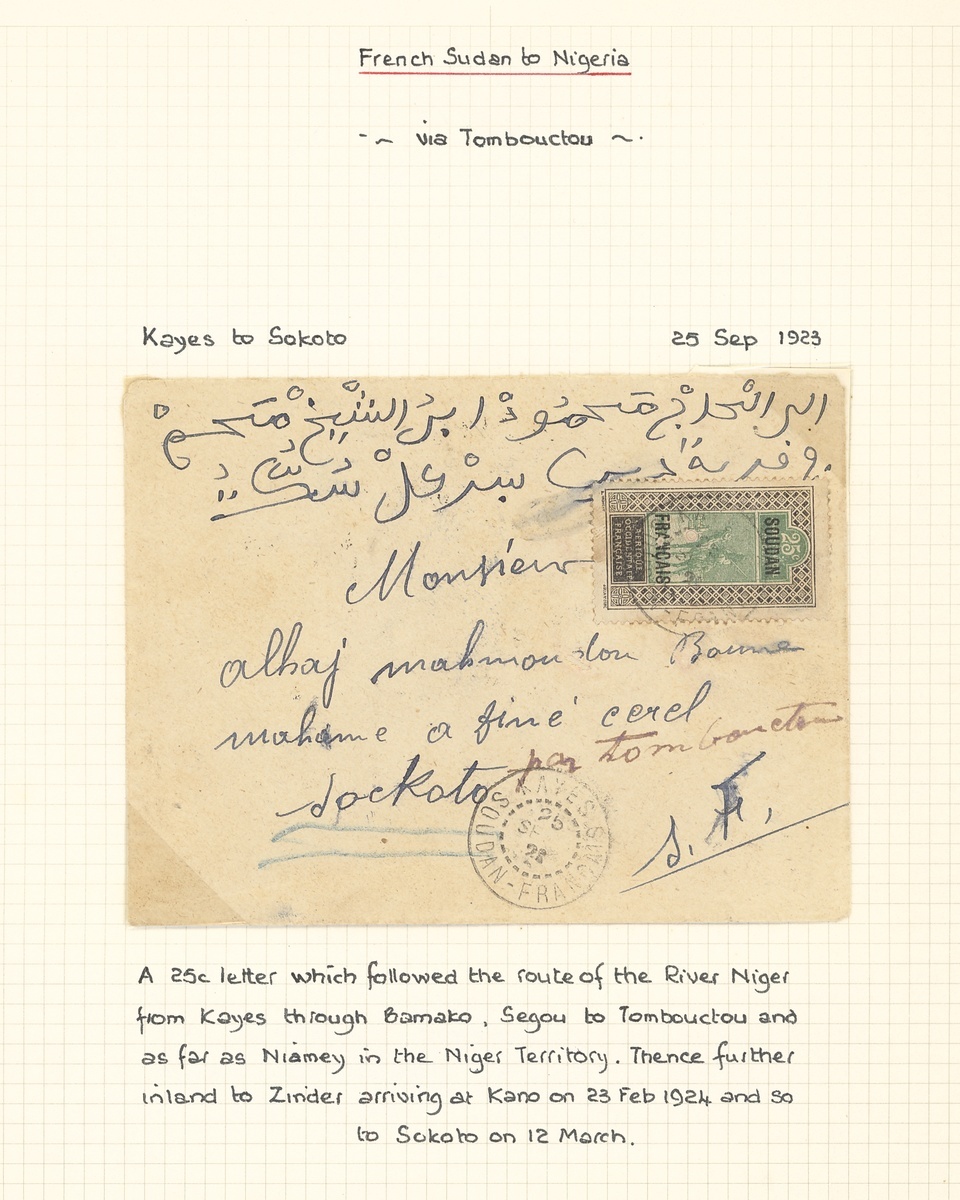 French Sudan to Nigeria
via Tombouctou
Kayes to Sokoto
25 Sep 1923
الى الحاج محمود ابن الشيخ محمد
25c
SOUDAN
FRANÇAIS
AFRIQUE
OCCIDENTALE
FRANÇAISE
Monsieur
alhaj mahmoudou
mahame a cercl
par tombouctou
Sockoto
S. F.
KAYES
25
SOUDAN-FRANÇAIS
A 25c letter which followed the route of the River Niger
from Kayes through Bamako, Segou to Tombouctou and
as far as Niamey in the Niger Territory. Thence further
inland to Zinder arriving at Kano on 23 Feb 1924 and so
to Sokoto on 12 March.